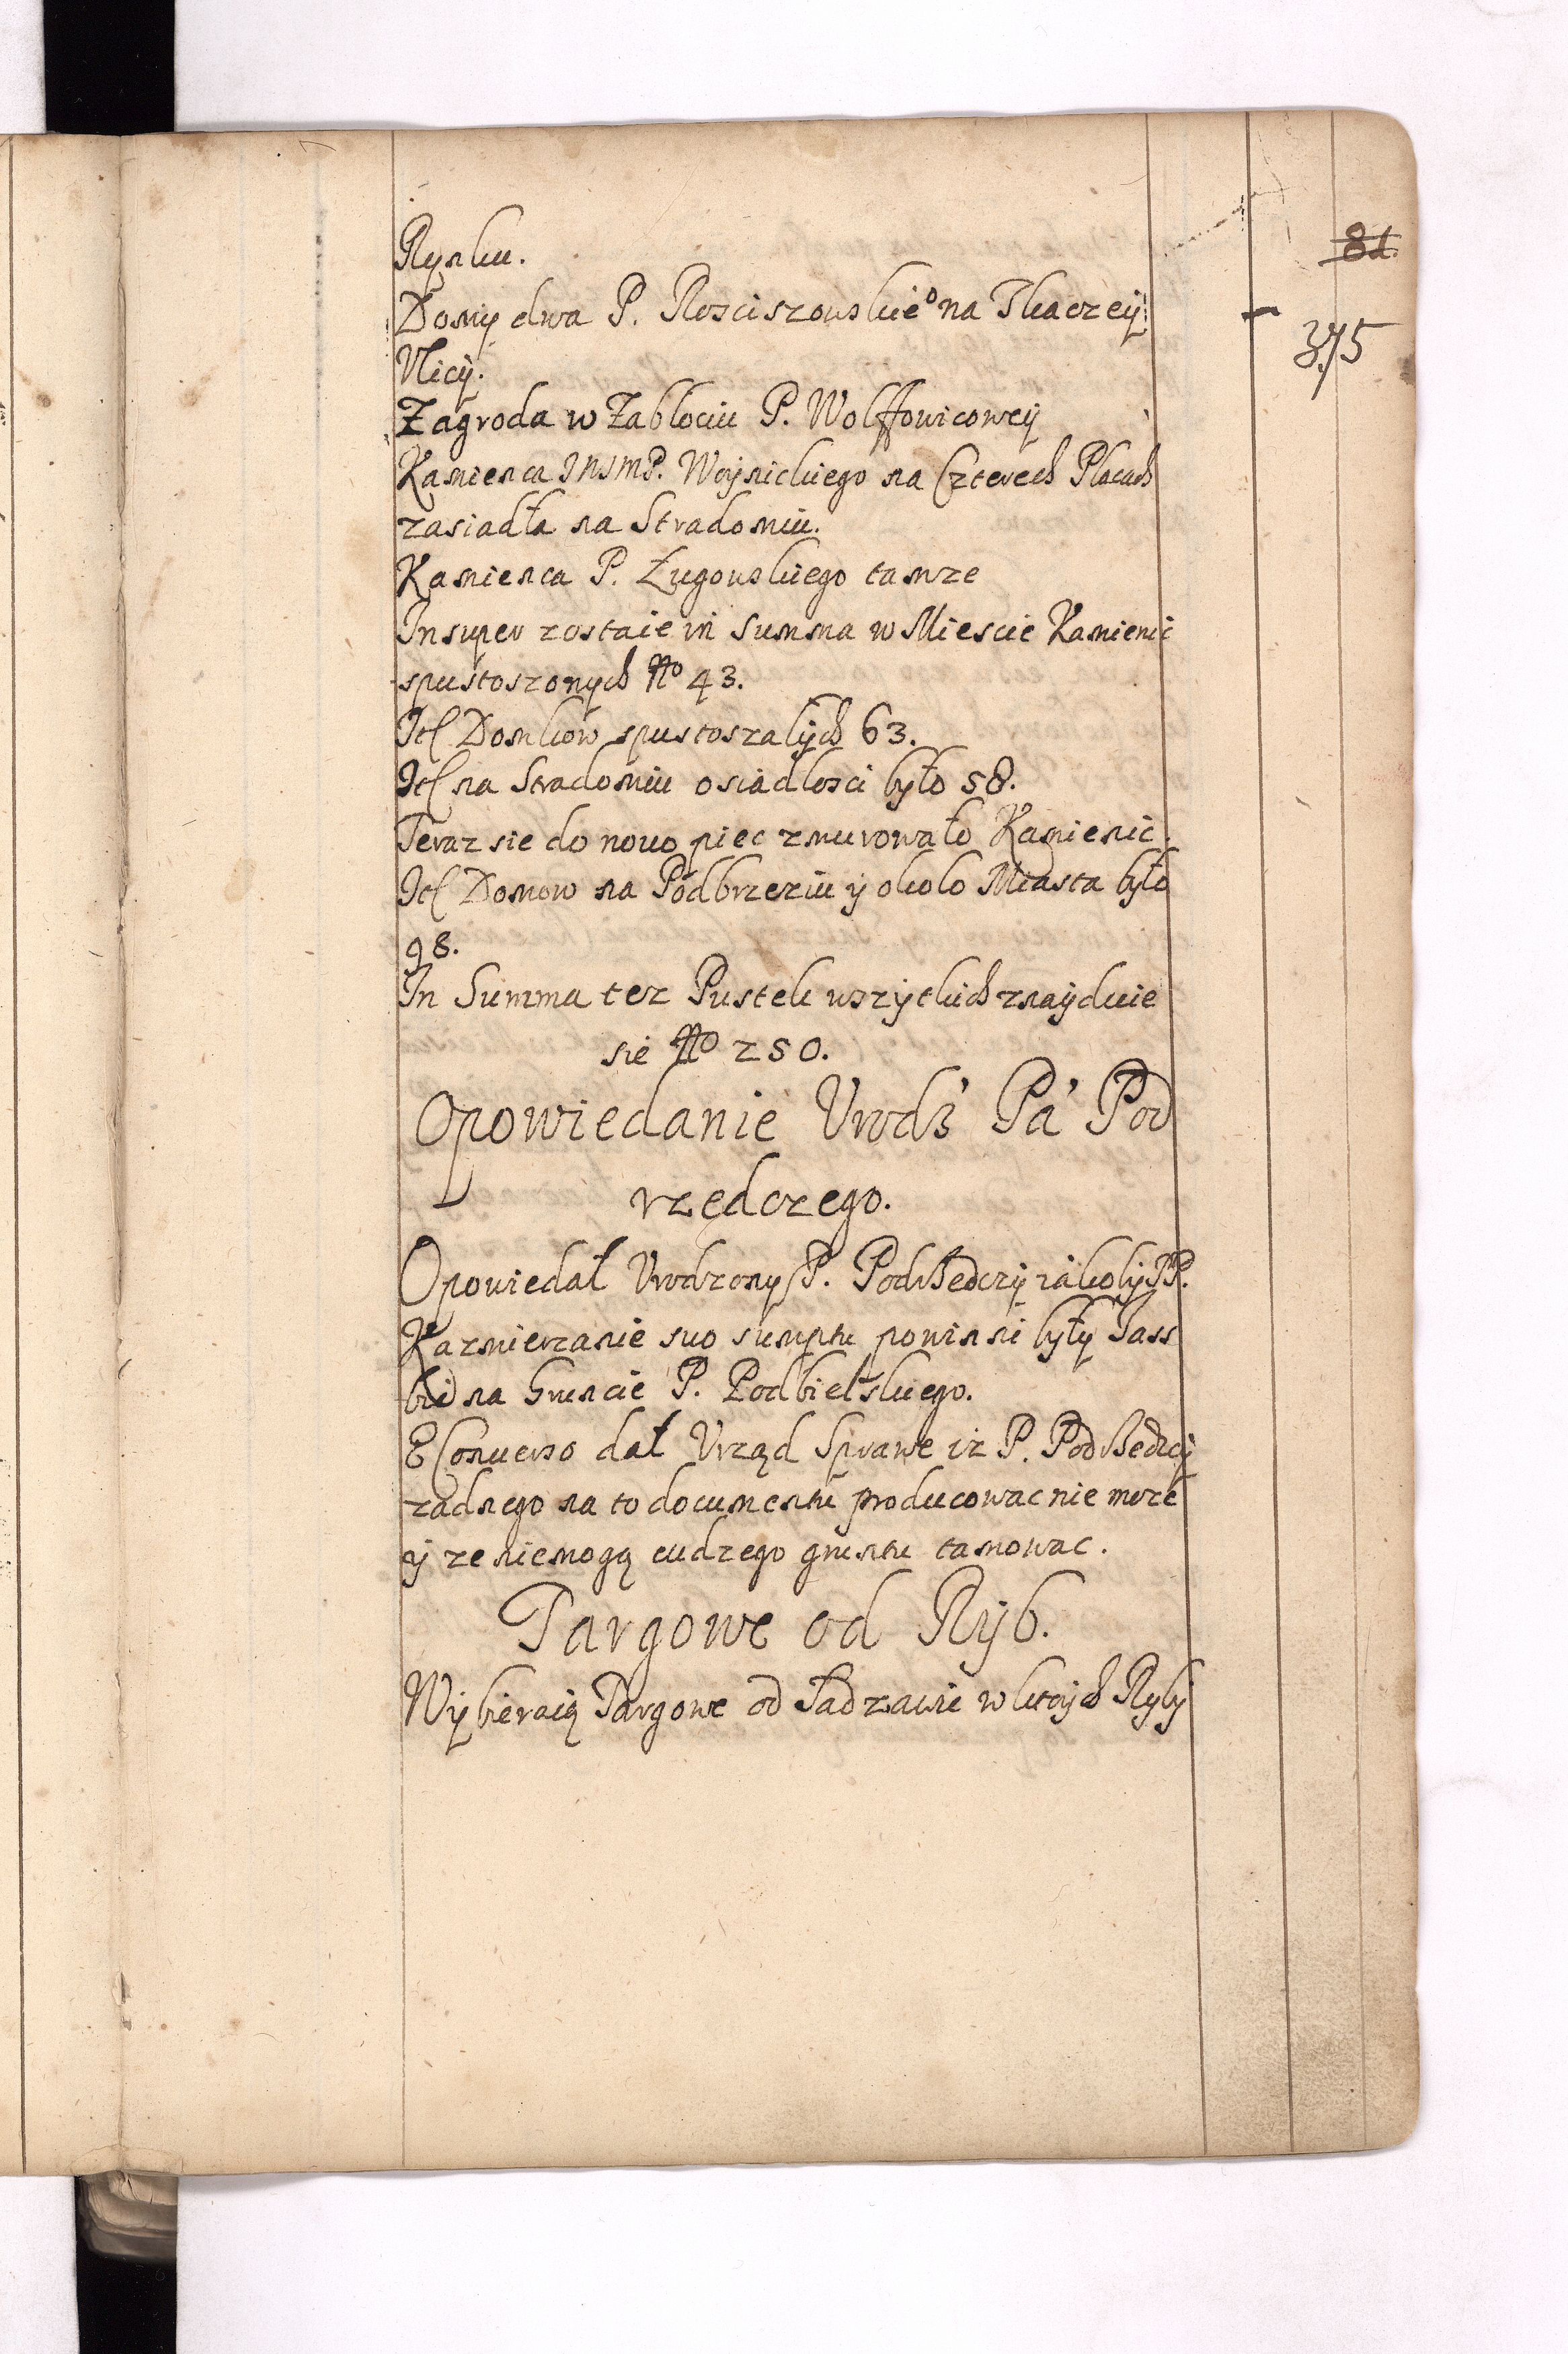 81.
375
Rynku.
Domy dwa P. Rosciszowskie⁰ na Tkaczeÿ
Vlicÿ.
Zagroda w Zabłociu P. Wolffowicoweÿ
Kamienca JMSMP. Woÿnickiego na Czterech Placach
zasiadła na Stradomiu.
Kamienca P. Ługowskiego tamze
Insuper zostaie in Summa w Miescie Kamienic
spustoszonych No 43.
Itt Domkow spustoszalÿch 63.
Itt na Stradomiu osiadłosci było 58.
Teraz sie do nowo piec zmurowało Kamienic.
Itt Domow na Podbrzeziu ÿ około Miasta było
98.
In Summa tez Pustek wszÿtkich znaÿduie
sie No 250.
Opowiedanie Vrodz' Pa' Pod
rzędczego.
Opowiedał Vrodzony P. Podrzędczÿ iákobÿ PP.
Kazmierzanie suo sumptu powinni byłÿ Tass
bic na Gruncie P. Podbielskiego.
E Conuerso dał Vrząd Sprawe iz P. Podrzędczÿ
zadnego na to documentu producowac nie moze
ÿ ze niemogą cudzego gruntu tamowac.
Targowe od Rÿb.
Wÿbieraią Targowe od Sadzawie w ktorÿch Rybÿ